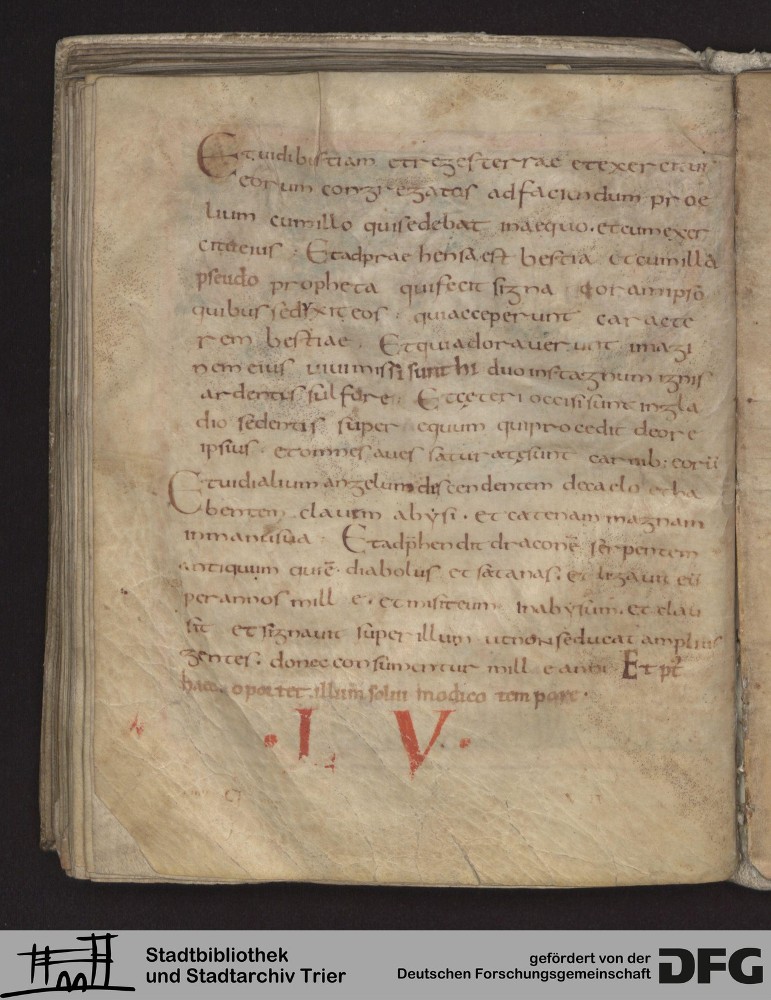 Et uidi bistiam et reges terrae et exercitus
eorum congregatos ad faciendum proe
lium cum illo qui sedebat in aequo · et cum exer
citu eius · Et adpraehensa est bestia et cum illa
pseudo propheta qui fecit signa coram ipso
quibus sedyxit eos · qui acceperunt caracte
rem bestiae · Et qui adorauerunt imagi
nem eius uiui missi sunt hi duo in stagnum ignis
ardentis sulfore · Et ceteri occisi sunt in gla
dio sedentis super equum qui procedit de ore
ipsius · et omnes aues saturate sunt carnib: eorū
Et uidi alium angelum discendentem de caelo · et ha
bentem clauem abysi · et catenam magnam
in manu sua · Et adp̄hendit draconē serpentem
antiquum qui ē · diabolus et satanas · et ligauit eū
per annos mill e · et misit eum in abysum · et clau
sit et signauit super illum ut non seducat amplius
gentes · donec consumentur mill e anni · Et pt
haec oportet illum solui modico tempore ·
· L V ·
Stadtbibliothek
und Stadtarchiv Trier
gefördert von der
Deutschen Forschungsgemeinschaft
DFG